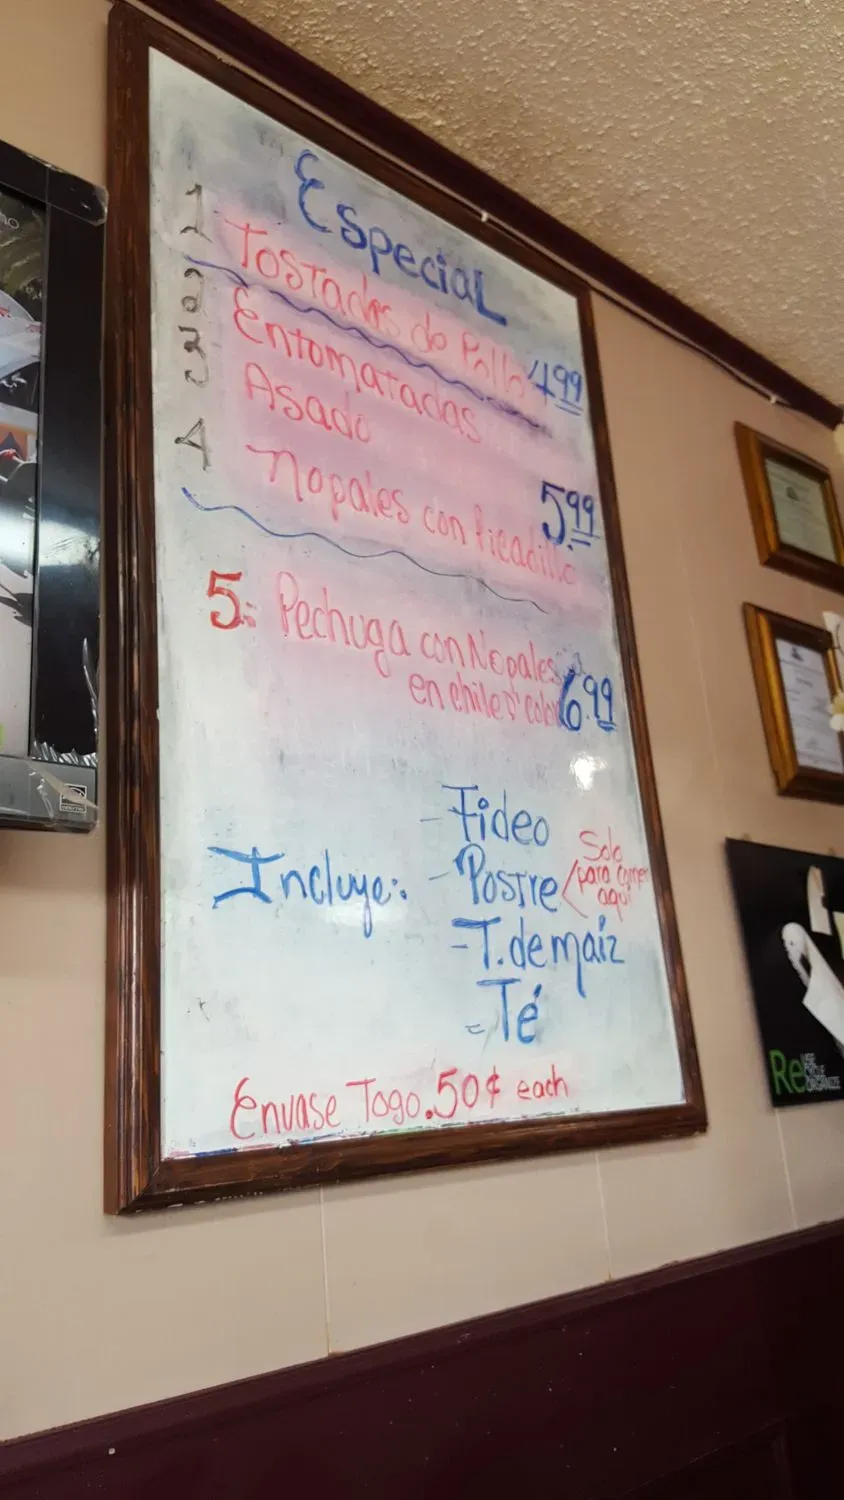 Especial
1 Tostadas de Pollo 4.99
2 Entomatadas
3 Asado
4 Nopales con Picadillo 5.99
5: Pechuga con Nopales
en chile color 6.99
Incluye:
- Fideo
- Postre < Solo para comer aquí
- T. de maíz
= Té
Envase Togo .50¢ each
Re USE
CYCLE
ORGANIZE